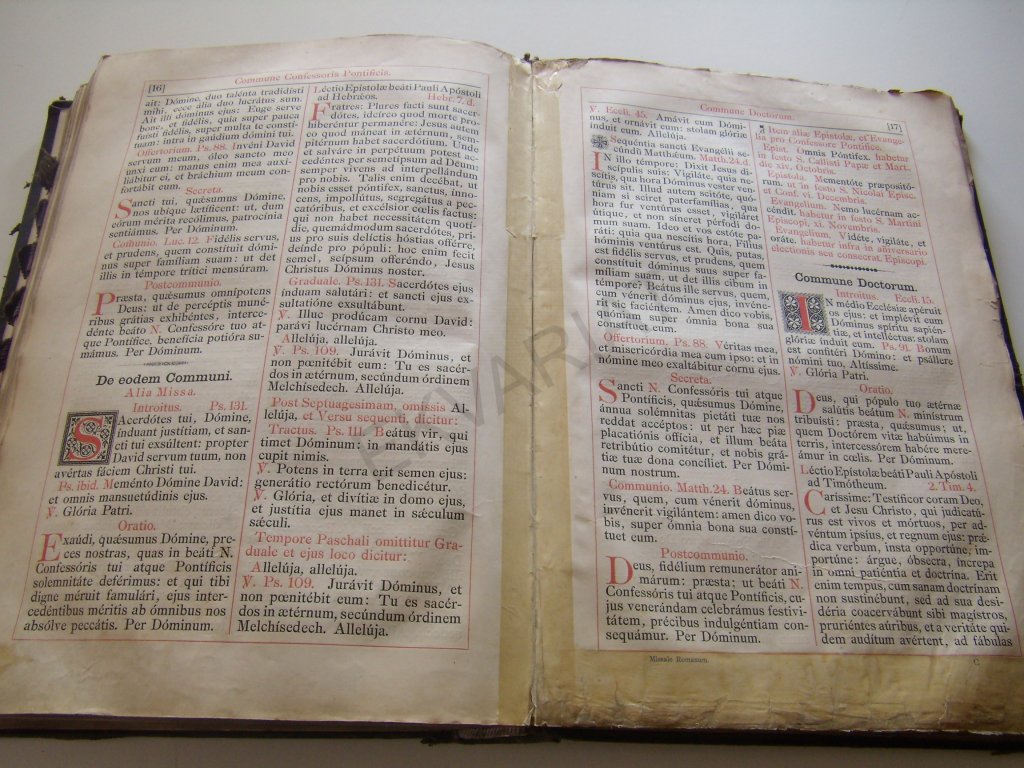 [16]
Commune Confessoris Pontificis.
ait: Dómine, duo talénta tradidísti
mihi, ecce ália duo lucrátus sum.
Ait illi dóminus ejus: Euge serve
bone, et fidélis, quia super pauca
fuísti fidélis, super multa te constí-
tuam: intra in gáudium dómini tui.
Offertorium. Ps. 88. Invéni David
servum meum, óleo sancto meo
unxi eum: manus enim mea auxi-
liábitur ei, et bráchium meum con-
fortábit eum.
Secreta.
Sancti tui, quǽsumus Dómine,
nos ubíque lætíficent: ut, dum
eórum mérita recólimus, patrocínia
sentiámus. Per Dóminum.
Communio. Luc. 12. Fidélis servus,
et prudens, quem constítuit dómi-
nus super famíliam suam: ut det
illis in témpore trítici mensúram.
Postcommunio.
Præsta, quǽsumus omnípotens
Deus: ut de percéptis muné-
ribus grátias exhibéntes, intercé-
dénte beáto N. Confessóre tuo at-
que Pontífice, benefícia potióra su-
mámus. Per Dóminum.
De eodem Communi.
Alia Missa.
Introitus. Ps. 131.
Sacerdótes tui, Dómine,
índuant justítiam, et san-
cti tui exsúltent: propter
David servum tuum, non
avértas fáciem Christi tui.
Ps. ibid. Meménto Dómine David:
et omnis mansuetúdinis ejus.
℣. Glória Patri.
Oratio.
Exaúdi, quǽsumus Dómine, pre-
ces nostras, quas in beáti N.
Confessóris tui atque Pontíficis
solemnitáte deférimus: et qui tibi
digne méruit famulári, ejus inter-
cedéntibus méritis ab ómnibus nos
absólve peccátis. Per Dóminum.
Léctio Epístolæ beáti Pauli Apóstoli
ad Hebrǽos. Hebr. 7. d.
Fratres: Plures facti sunt sacer-
dótes, idcírco quod morte pro-
hiberéntur permanére: Jesus autem
eo quod máneat in ætérnum, sem-
pitérnum habet sacerdótium. Unde
et salváre in perpétuum potest ac-
cedéntes per semetípsum ad Deum:
semper vivens ad interpellándum
pro nobis. Talis enim decébat, ut
nobis esset póntifex, sanctus, ínno-
cens, impollútus, segregátus a pec-
catóribus, et excélsior cœlis factus:
qui non habet necessitátem quotí-
die, quemádmodum sacerdótes, pri-
us pro suis delíctis hóstias offérre,
deínde pro pópuli: hoc enim fecit
semel, seípsum offeréndo, Jesus
Christus Dóminus noster.
Graduale. Ps. 131. Sacerdótes ejus
índuam salutári: et sancti ejus ex-
sultatióne exsultábunt.
℣. Illuc prodúcam cornu David:
parávi lucérnam Christo meo.
Allelúja, allelúja.
℣. Ps. 109. Jurávit Dóminus, et
non pœnitébit eum: Tu es sacér-
dos in ætérnum, secúndum órdinem
Melchísedech. Allelúja.
Post Septuagesimam, omissis Al-
lelúja, et Versu sequenti, dicitur:
Tractus. Ps. 111. Beátus vir, qui
timet Dóminum: in mandátis ejus
cupit nimis.
℣. Potens in terra erit semen ejus:
generátio rectórum benedicétur.
℣. Glória, et divítiæ in domo ejus,
et justítia ejus manet in sǽculum
sǽculi.
Tempore Paschali omittitur Gra-
duale et ejus loco dicitur:
Allelúja, allelúja.
℣. Ps. 109. Jurávit Dóminus, et
non pœnitébit eum: Tu es sacér-
dos in ætérnum, secúndum órdinem
Melchísedech. Allelúja.
Commune Doctorum.
[17]
℣. Eccli. 45. Amávit eum Dómi-
nus, et ornávit eum: stolam glóriæ
índuit eum. Allelúja.
Sequéntia sancti Evangélii se-
cúndu Matthǽum. Matth. 24. d.
In illo témpore: Dixit Jesus di-
scípulis suis: Vigiláte, quia ne-
scítis, qua hora Dóminus vester ven-
túrus sit. Illud autem scitóte, quó-
niam si sciret paterfamílias, qua
hora fur ventúrus esset, vigiláret
útique, et non síneret pérfodi do-
mum suam. Ideo et vos estóte pa-
ráti: quia qua nescítis hora, Fílius
hóminis ventúrus est. Quis, putas,
est fidélis servus, et prudens, quem
constítuit dóminus suus super fa-
míliam suam, ut det illis cibum in
témpore? Beátus ille servus, quem,
cum vénerit dóminus ejus, invéne-
rit sic faciéntem. Amen dico vobis,
quóniam super ómnia bona sua
constítuet eum.
Offertorium. Ps. 88. Véritas mea,
et misericórdia mea cum ipso: et in
nómine meo exaltábitur cornu ejus.
Secreta.
Sancti N. Confessóris tui atque
Pontíficis, quǽsumus Dómine,
ánnua solémnitas pietáti tuæ nos
reddat accéptos: ut per hæc piæ
placatiónis offícia, et illum beáta
retribútio comitétur, et nobis grá-
tiæ tuæ dona concíliet. Per Dómi-
num nostrum.
Communio. Matth. 24. Beátus ser-
vus, quem, cum vénerit dóminus,
invénerit vigilántem: amen dico vo-
bis, super ómnia bona sua constí-
tuet eum.
Postcommunio.
Deus, fidélium remunerátor ani-
márum: præsta; ut beáti N.
Confessóris tui atque Pontíficis, cu-
jus venerándam celebrámus festivi-
tátem, précibus indulgéntiam con-
sequámur. Per Dóminum.
¶ Item aliæ Epistolæ, et Evange-
lia pro Confessore Pontifice.
Epist. Omnis Póntifex. habetur
in festo S. Callisti Papæ et Mart.
die xiv. Octobris.
Epistola. Mementóte præpositó-
rum. ut in festo S. Nicolai Episc.
et Conf. vi. Decembris.
Evangelium. Nemo lucérnam ac-
céndit. habetur in festo S. Martini
Episcopi. xi. Novembris.
Evangelium. Vidéte, vigiláte, et
oráte. habetur infra in aniversario
electionis seu consecrat. Episcopi.
Commune Doctorum.
Introitus. Eccli. 15.
In médio Ecclésiæ apéruit
os ejus: et implévit eum
Dóminus spíritu sapién-
tiæ, et intelléctus: stolam
glóriæ índuit eum. Ps. 91. Bonum
est confitéri Dómino: et psállere
nómini tuo, Altíssime.
℣. Glória Patri.
Oratio.
Deus, qui pópulo tuo ætérnæ
salútis beátum N. minístrum
tribuísti: præsta, quǽsumus; ut,
quem Doctórem vitæ habúimus in
terris, intercessórem habére mere-
ámur in cœlis. Per Dóminum.
Léctio Epístolæ beáti Pauli Apóstoli
ad Timótheum. 2. Tim. 4.
Caríssime: Testíficor coram Deo,
et Jesu Christo, qui judicatú-
rus est vivos et mórtuos, per ad-
véntum ipsíus, et regnum ejus: prǽ-
dica verbum, insta opportúne, im-
portúne: árgue, óbsecra, íncrepa
in omni patiéntia et doctrína. Erit
enim tempus, cum sanam doctrínam
non sustinébunt, sed ad sua desi-
déria coacervábunt sibi magístros,
pruriéntes áuribus, et a veritáte qui-
dem audítum avértent, ad fábulas
Missale Romanum.
C